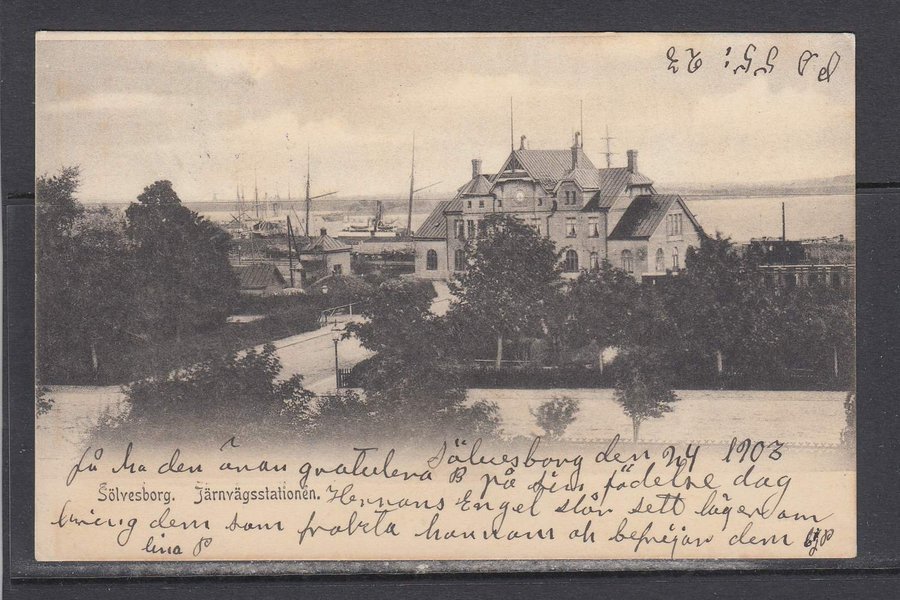 Ps 55: 23
Sölvesborg den 24 1903
få Ma den äran gratulera B på sin födelse dag
Sölvesborg. Järnvägsstationen.
Herrans Engel slår sett läger om
kring dem som frokta honnom oh befrejar dem
lina P